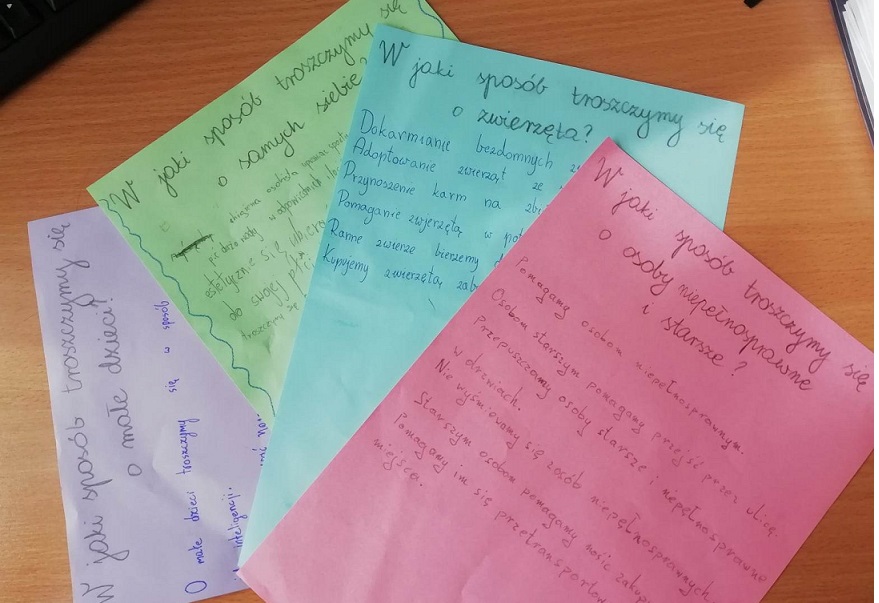 W jaki sposób troszczymy się
o małe dzieci?
O małe dzieci troszczymy się w sposób
inteligencji.
W jaki sposób troszczymy się
o samych siebie?
higiena osobista
estetycznie się
do swojej
troszczymy się
W jaki sposób troszczymy się
o zwierzęta?
Dokarmianie bezdomnych
Adoptowanie zwierząt ze
Przynoszenie karm na
Pomaganie zwjerzętą w
Ranne zwierze bierzemy
Kupujemy zwierzętą
W jaki sposób troszczymy się
o osoby niepełnosprawne
i starsze?
Pomagamy osobom niepełnosprawnym.
Osobom starszym pomagamy przejść przez ulicę.
Przepuszczamy osoby starsze i niepełnosprawne
w drzwiach.
Nie wyśmiewamy się zosób niepełnosprawnych
Starszym osobom pomagamy nosić
Pomagamy im się
miejsca.